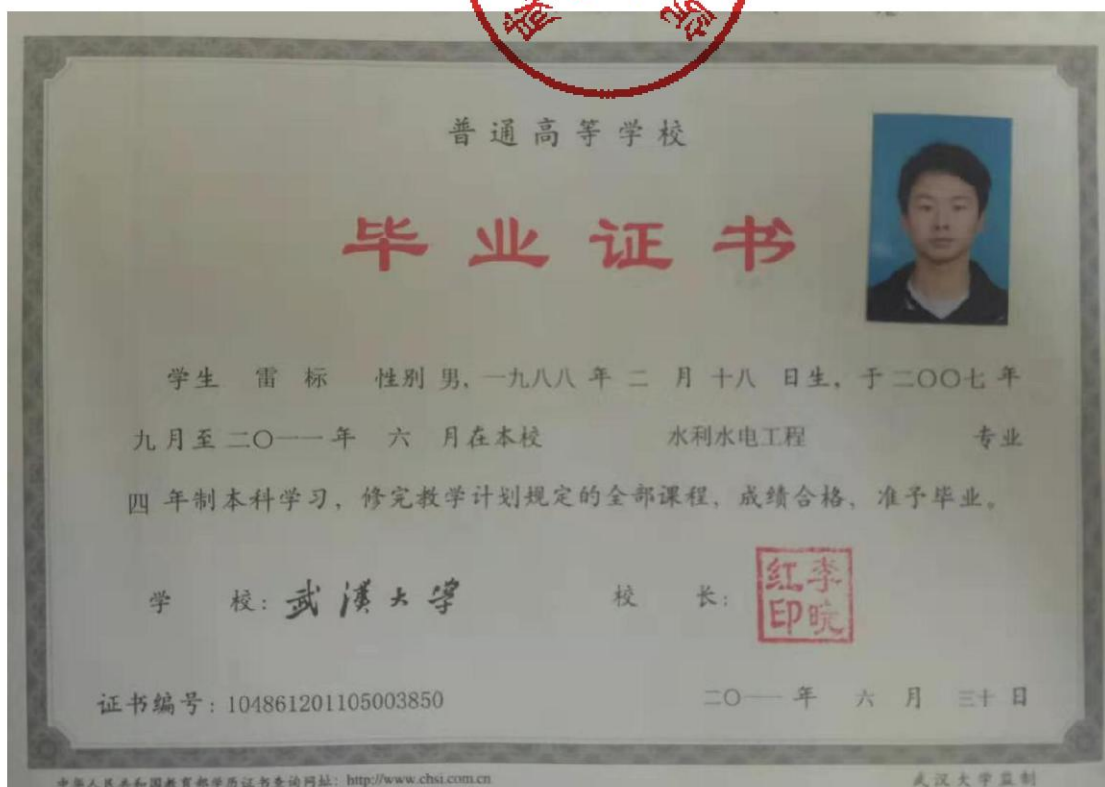 普通高等学校
毕业证书
学生 雷标 性别 男，一九八八 年 二 月 十八 日生，于 二〇〇七 年
九 月至 二〇一一 年 六 月在本校 水利水电工程 专业
四 年制本科学习，修完教学计划规定的全部课程，成绩合格，准予毕业。
学 校：武漢大學 校 长：李晓红印
证书编号：104861201105003850 二〇一一 年 六 月 三十 日
中华人民共和国教育部学历证书查询网址：http://www.chsi.com.cn 武汉大学监制